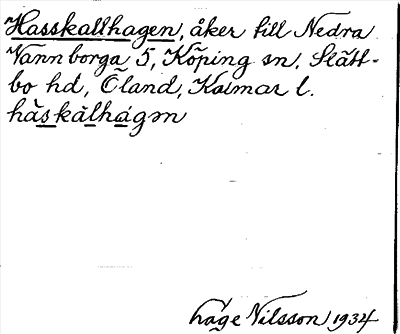 Hasskallhagen, åker till Nedra
Vannborga 5, Köping sn, Slätt-
bo hd, Öland, Kalmar l.
hàskálhágən
Åage Nilsson 1934